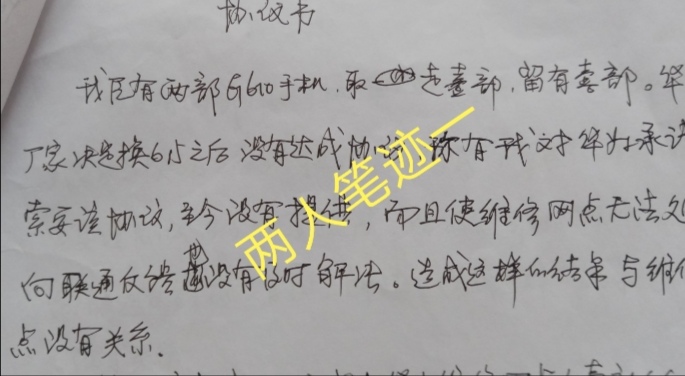 协议书
我只有两部G610手机，取走壹部，留有壹部。华
厂家决定换615之后没有达成协议，称有我对华为承诺
索要该协议，至今没有提供，而且使维修网点无法处
向联通反馈也没有及时解决。造成这样的结果与维修
点没有关系．
两人笔迹一